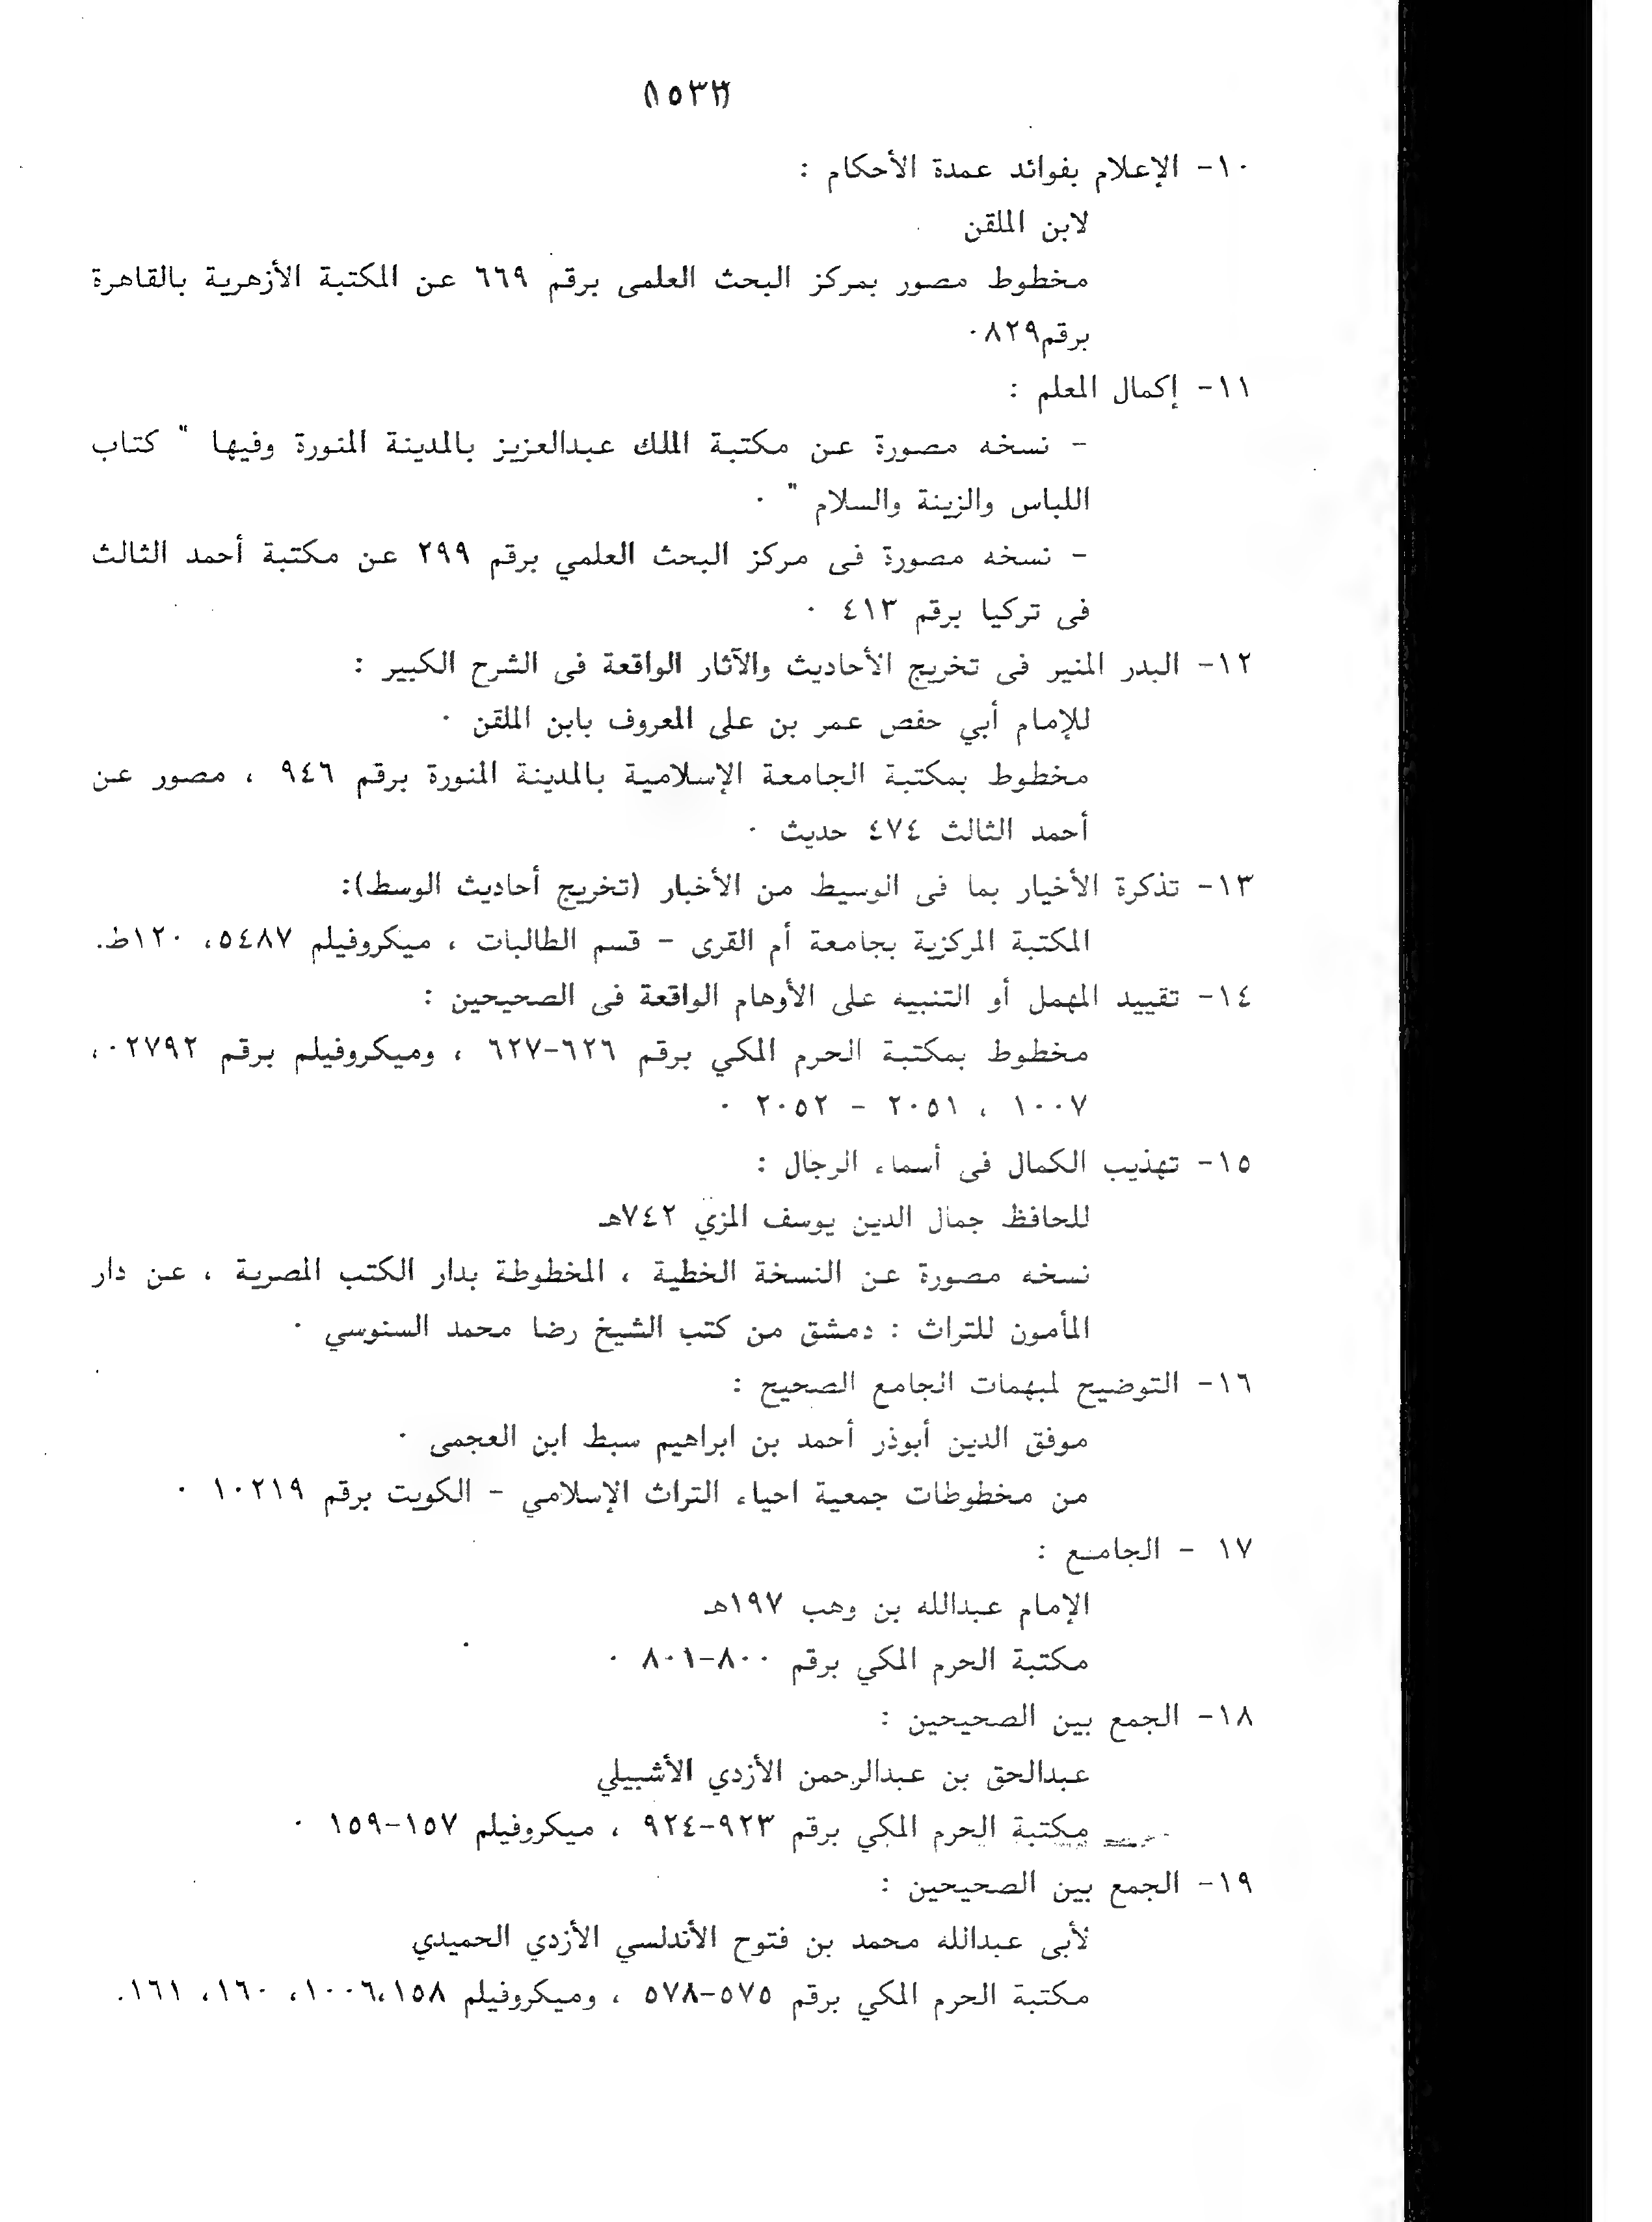 (١٥٣٣)
١٠- الإعلام بفوائد عمدة الأحكام :
لابن الملقن
مخطوط مصور بمركز البحث العلمى برقم ٦٦٩ عن المكتبة الأزهرية بالقاهرة
برقم٨٢٩٠
١١- إكمال المعلم :
- نسخه مصورة عن مكتبة الملك عبدالعزيز بالمدينة المنورة وفيها " كتاب
اللباس والزينة والسلام " ٠
- نسخه مصورة فى مركز البحث العلمي برقم ٢٩٩ عن مكتبة أحمد الثالث
فى تركيا برقم ٤١٣ ٠
١٢- البدر المنير فى تخريج الأحاديث والآثار الواقعة فى الشرح الكبير :
للإمام أبي حفص عمر بن على المعروف بابن الملقن ٠
مخطوط بمكتبة الجامعة الإسلامية بالمدينة المنورة برقم ٩٤٦ ، مصور عن
أحمد الثالث ٤٧٤ حديث ٠
١٣- تذكرة الأخيار بما فى الوسيط من الأخبار (تخريج أحاديث الوسط):
المكتبة المركزية بجامعة أم القرى - قسم الطالبات ، ميكروفيلم ٥٤٨٧، ١٢٠ط.
١٤- تقييد المهمل أو التنبيه على الأوهام الواقعة فى الصحيحين :
مخطوط بمكتبة الحرم المكي برقم ٦٢٦-٦٢٧ ، وميكروفيلم برقم ٢٧٩٢٠،
١٠٠٧ ، ٢٠٥١ - ٢٠٥٢ ٠
١٥- تهذيب الكمال فى أسماء الرجال :
للحافظ جمال الدين يوسف المزي ٧٤٢هـ
نسخه مصورة عن النسخة الخطية ، المخطوطة بدار الكتب المصرية ، عن دار
المأمون للتراث : دمشق من كتب الشيخ رضا محمد السنوسي ٠
١٦- التوضيح لمبهمات الجامع الصحيح :
موفق الدين أبوذر أحمد بن ابراهيم سبط ابن العجمى ٠
من مخطوطات جمعية احياء التراث الإسلامي - الكويت برقم ١٠٢١٩ ٠
١٧ - الجامع :
الإمام عبدالله بن وهب ١٩٧هـ
مكتبة الحرم المكي برقم ٨٠٠-٨٠١ ٠
١٨- الجمع بين الصحيحين :
عبدالحق بن عبدالرحمن الأزدي الأشبيلي
مكتبة الحرم المكي برقم ٩٢٣-٩٢٤ ، ميكروفيلم ١٥٧-١٥٩ ٠
١٩- الجمع بين الصحيحين :
لأبى عبدالله محمد بن فتوح الأندلسي الأزدي الحميدي
مكتبة الحرم المكي برقم ٥٧٥-٥٧٨ ، وميكروفيلم ١٥٨،١٠٠٦، ١٦٠، ١٦١.